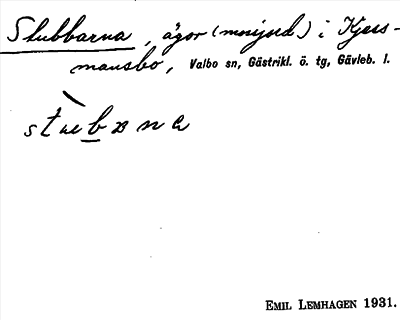 Stubbarna, ägor (mosjord) i Kjers-
mansbo, Valbo sn, Gästrikl. ö. tg, Gävleb. l.
EMIL LEMHAGEN 1931.